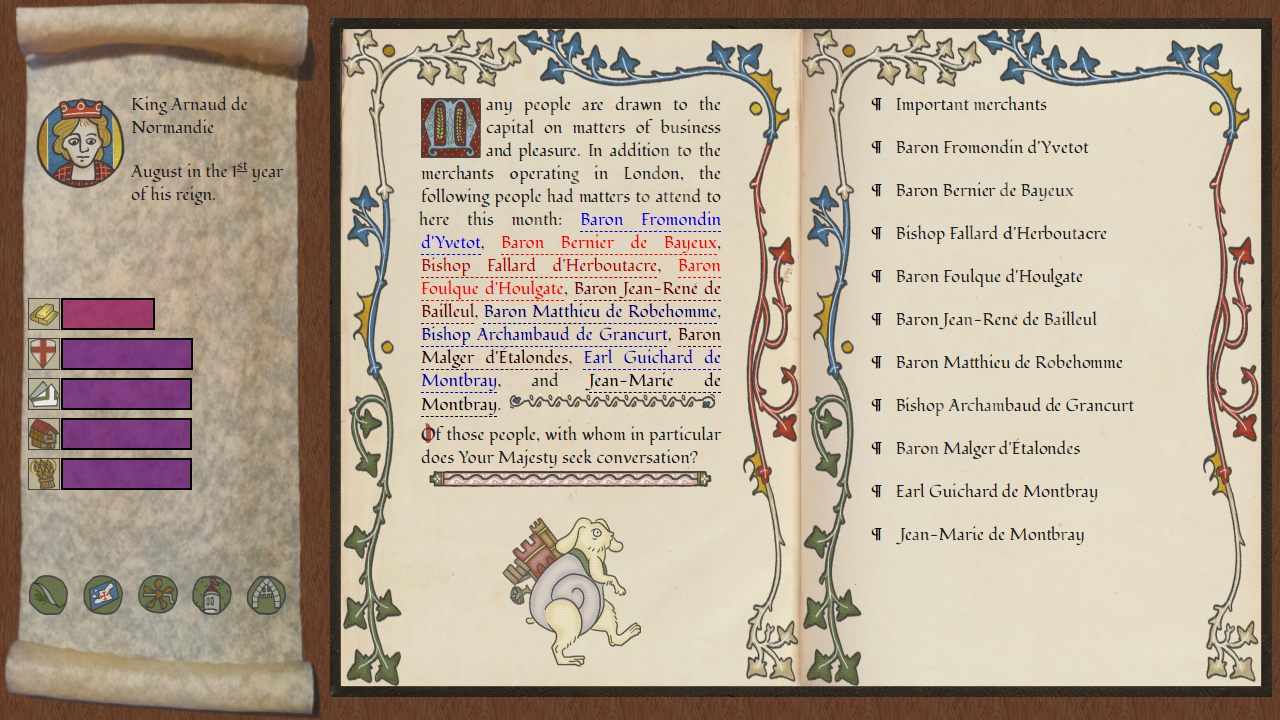 King Arnaud de
Normandie
August in the 1st year
of his reign.
Many people are drawn to the
capital on matters of business
and pleasure. In addition to the
merchants operating in London, the
following people had matters to attend to
here this month: Baron Fromondin
d'Yvetot, Baron Bernier de Bayeux,
Bishop Fallard d'Herboutacre, Baron
Foulque d'Houlgate, Baron Jean-René de
Bailleul, Baron Matthieu de Robehomme,
Bishop Archambaud de Grancurt, Baron
Malger d'Étalondes, Earl Guichard de
Montbray, and Jean-Marie de
Montbray.
Of those people, with whom in particular
does Your Majesty seek conversation?
¶ Important merchants
¶ Baron Fromondin d'Yvetot
¶ Baron Bernier de Bayeux
¶ Bishop Fallard d'Herboutacre
¶ Baron Foulque d'Houlgate
¶ Baron Jean-René de Bailleul
¶ Baron Matthieu de Robehomme
¶ Bishop Archambaud de Grancurt
¶ Baron Malger d'Étalondes
¶ Earl Guichard de Montbray
¶ Jean-Marie de Montbray